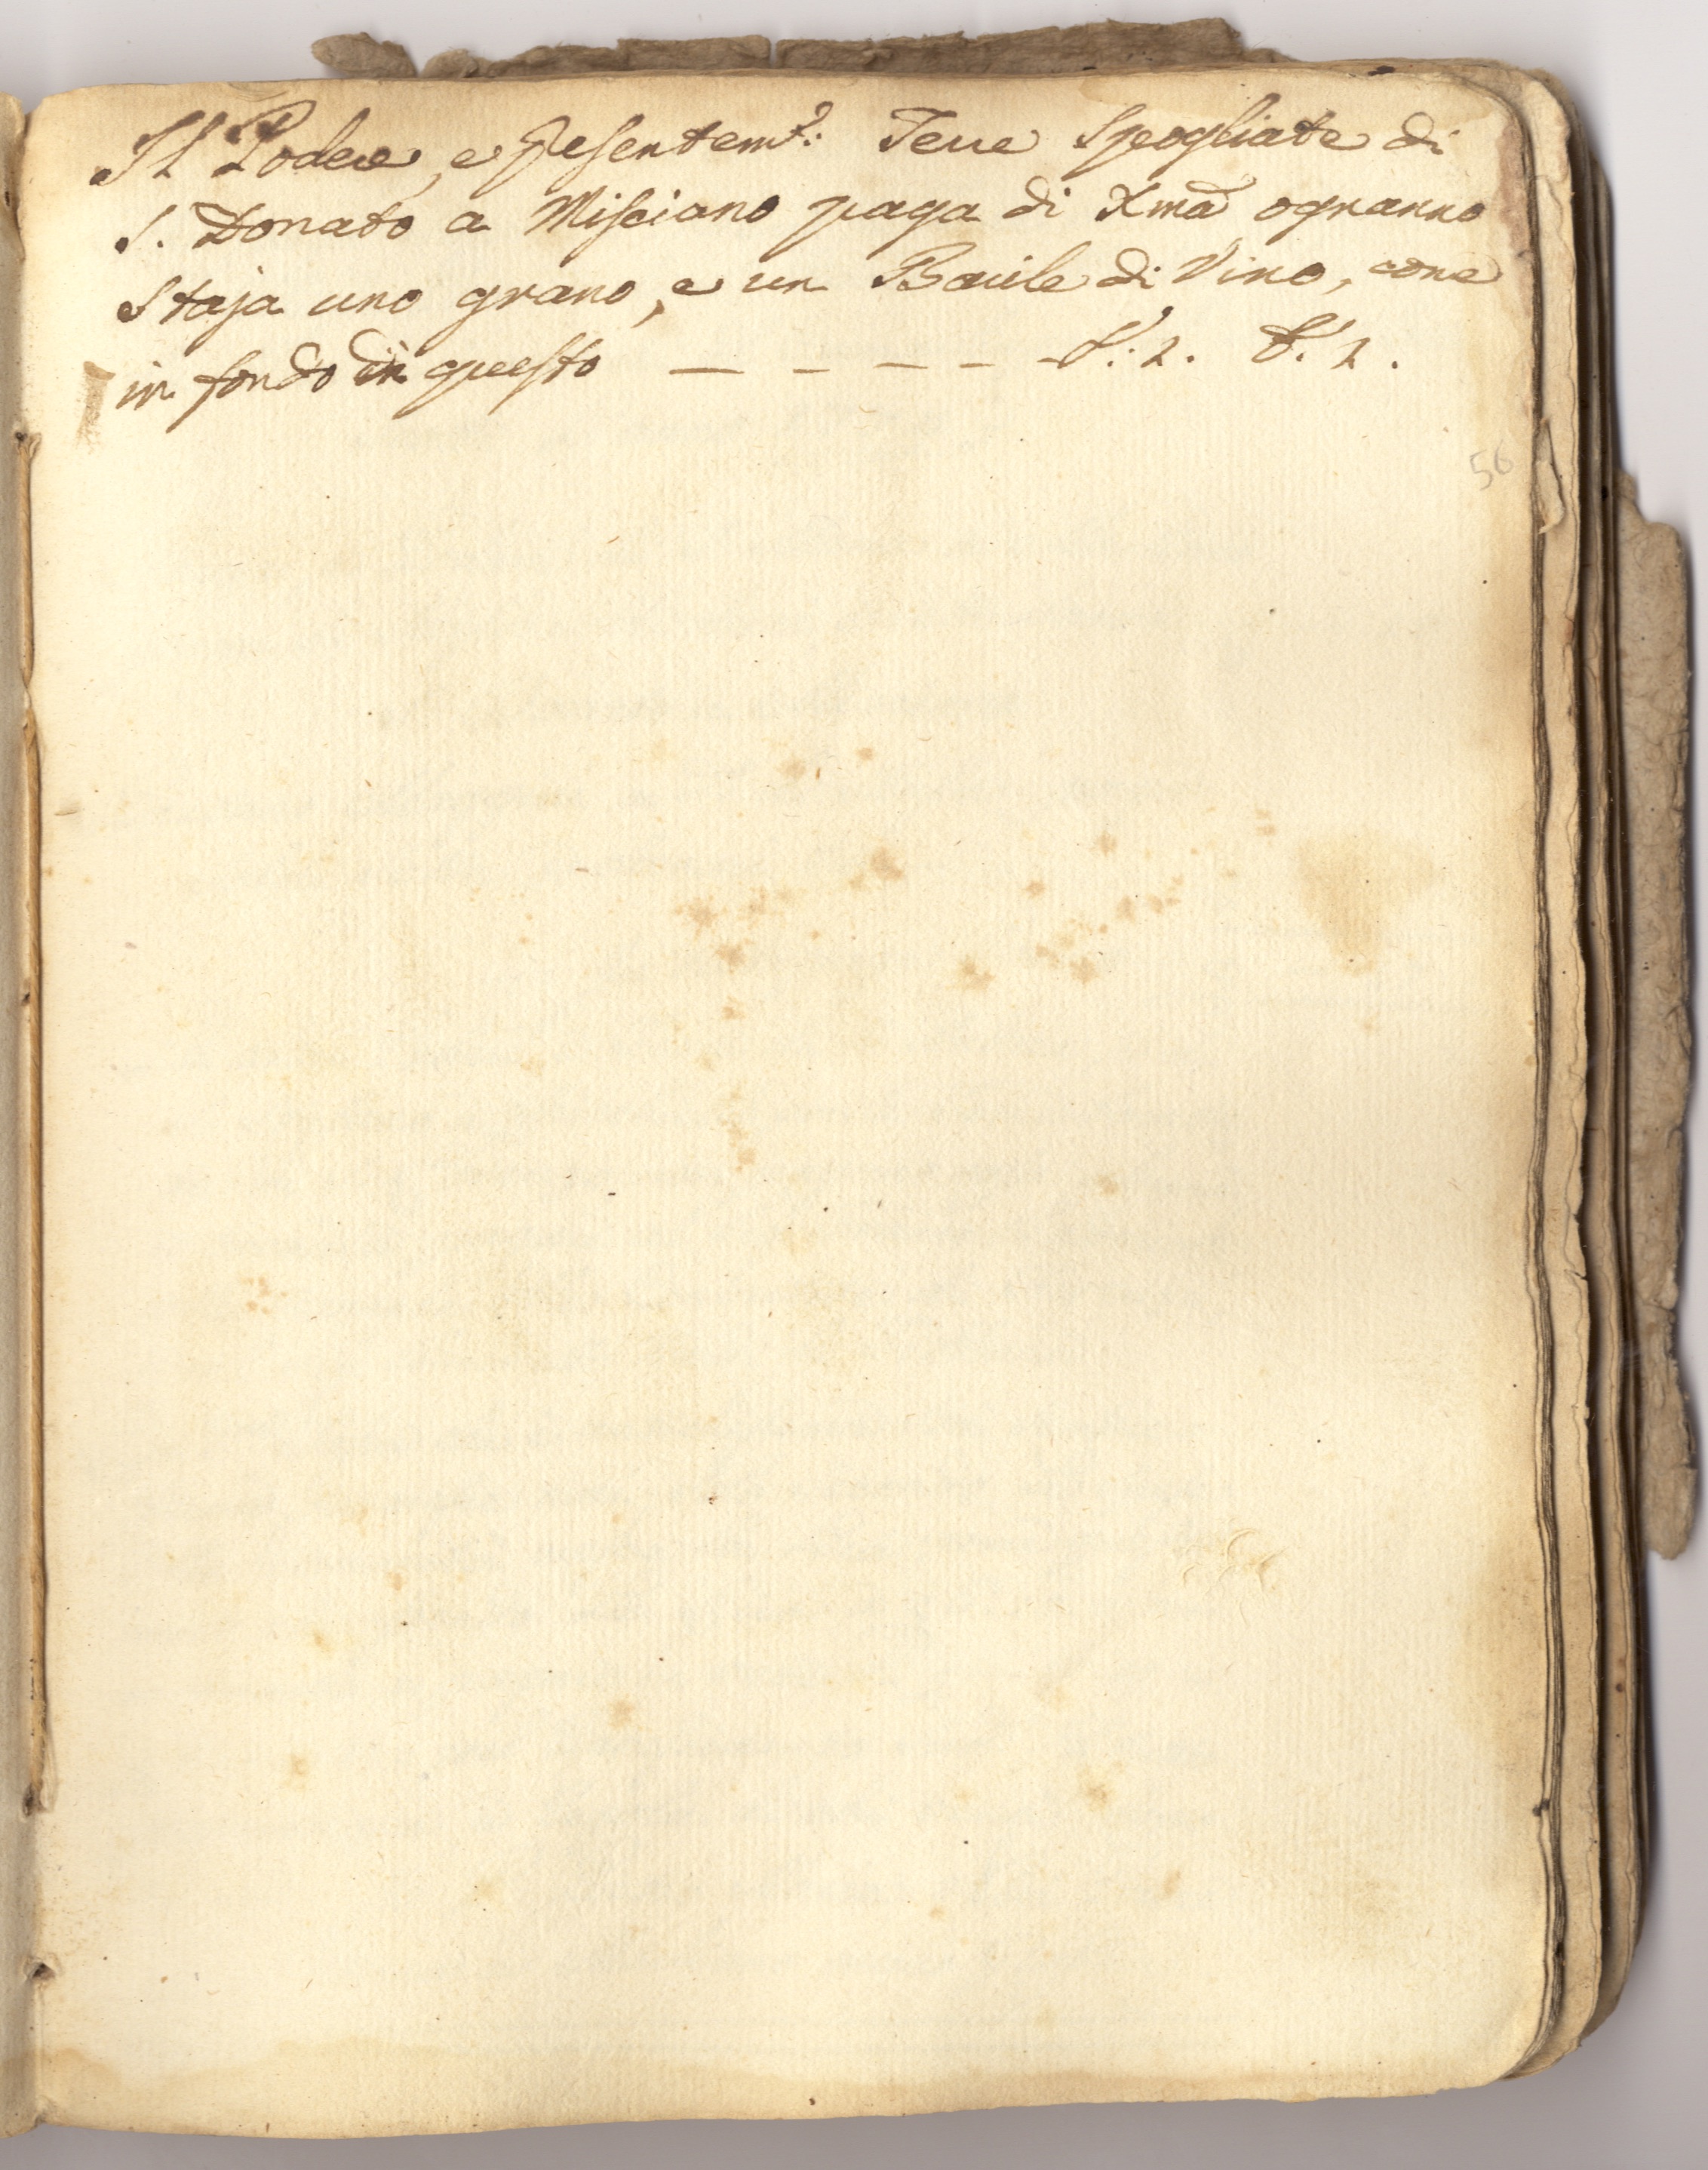 Il Podere, e presentemte: Terre Spogliate di
S. Donato a Misciano paga di Xma ogn'anno
Staja uno grano, e un Barile di Vino, come
in fondo di questo — — — — S: 1. B. 1.
56